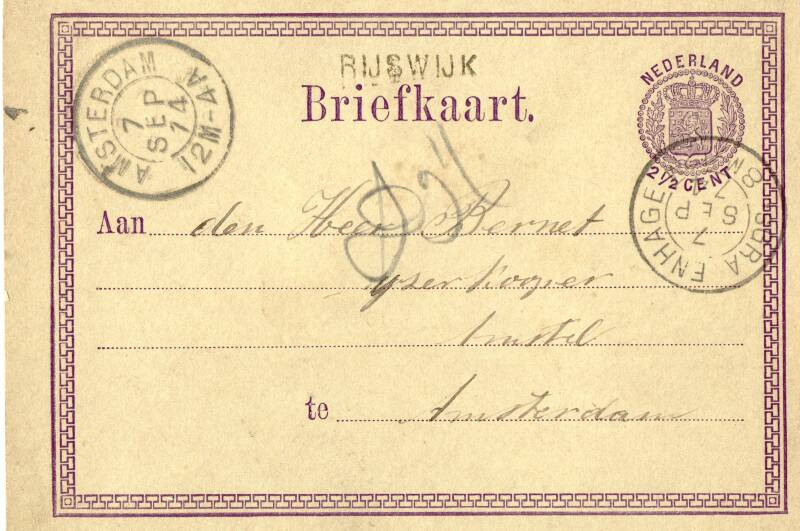 RIJSWIJK
Briefkaart.
NEDERLAND
2½ CENT
AMSTERDAM
7
SEP
74
12M-4A
'SGRAVENHAGE
7
SEP
74
Aan den Heer Bernet
yserkooper
Amstel
te Amsterdam